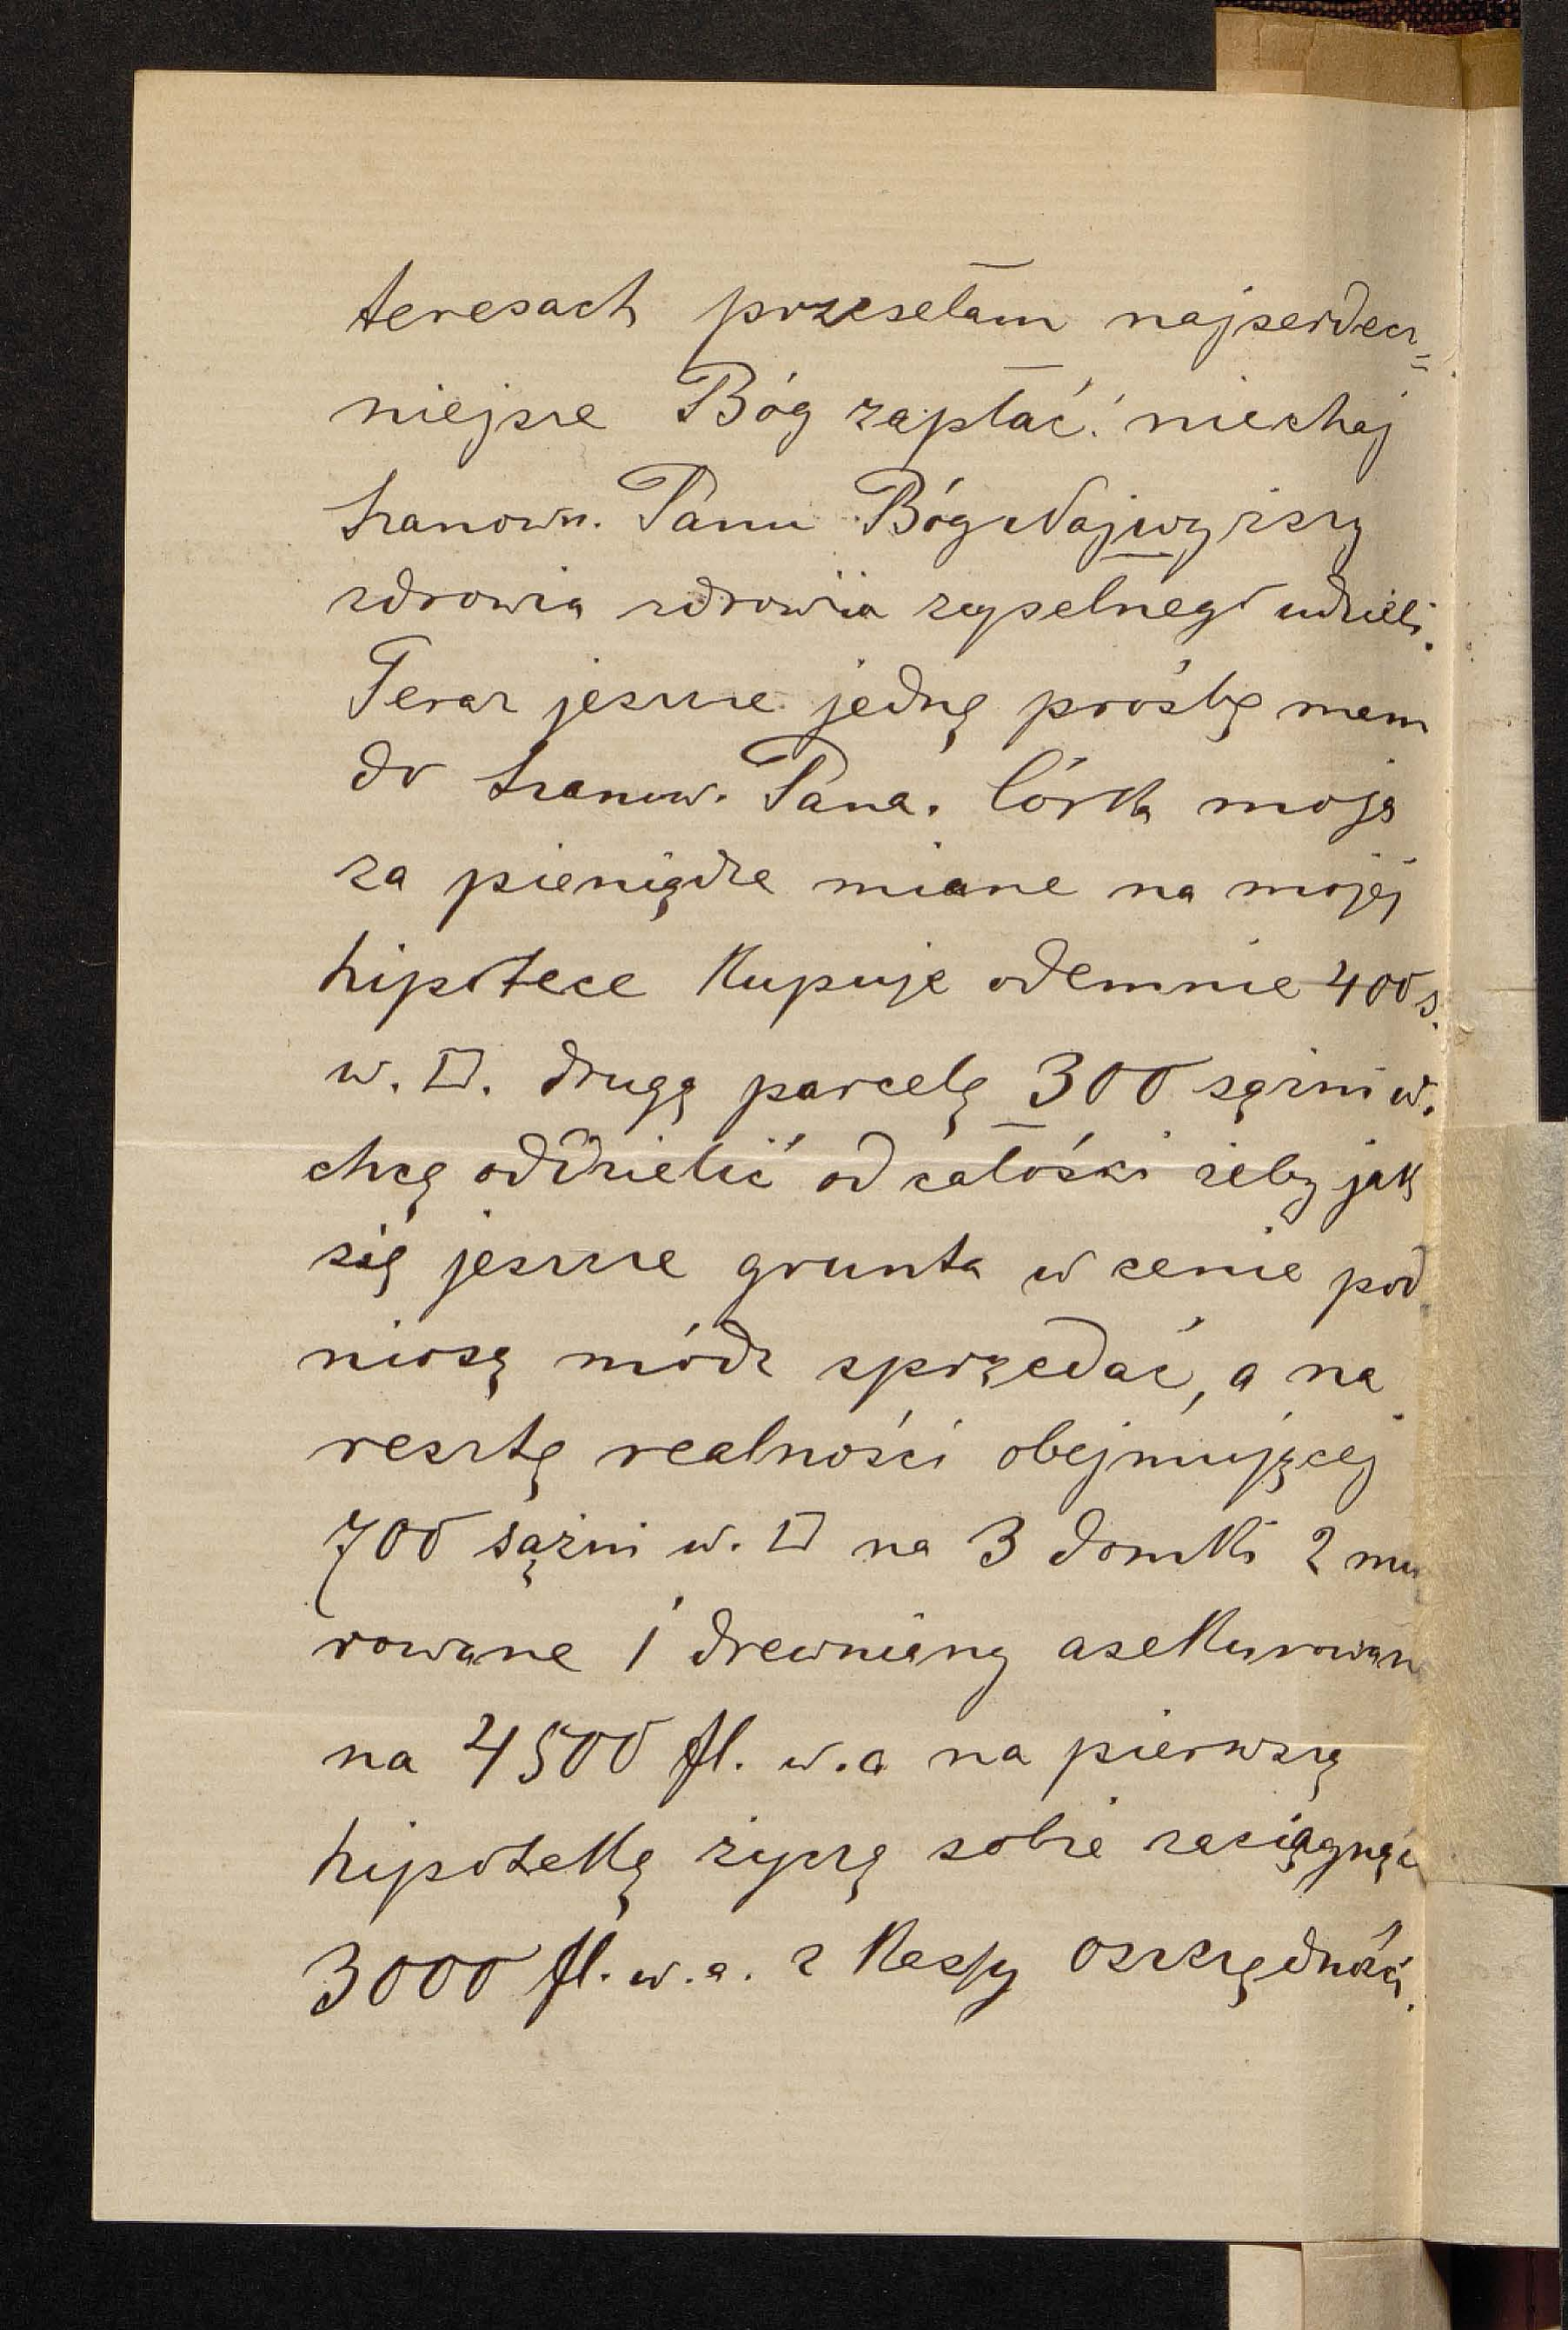 teresach przesełam najserdecz=
niejsze Bóg zapłać! niechaj
szanown. Panu Bóg Najwyższy
zdrowia zdrowia zupełnego udzieli.
Teraz jeszcze jedną prośbę mam
do szanow. Pana. Córka moja
za pieniądze miane na mojej
hipotece kupuje odemnie 400 s.
w. □. drugą parcelę 300 sążni w.
chcę oddzielić od całości żeby jak
się jeszcze grunta w cenie pod
niosą módz sprzedać, a na
resztę realności obejmującej
700 sążni w. □ na 3 domki 2 mu
rowane 1 drewniany asekurowan
na 4500 fl. w. a na pierwszą
hipotekę życzę sobie zaciągnąć
3000 fl. w. a. z Kassy Oszczędności.